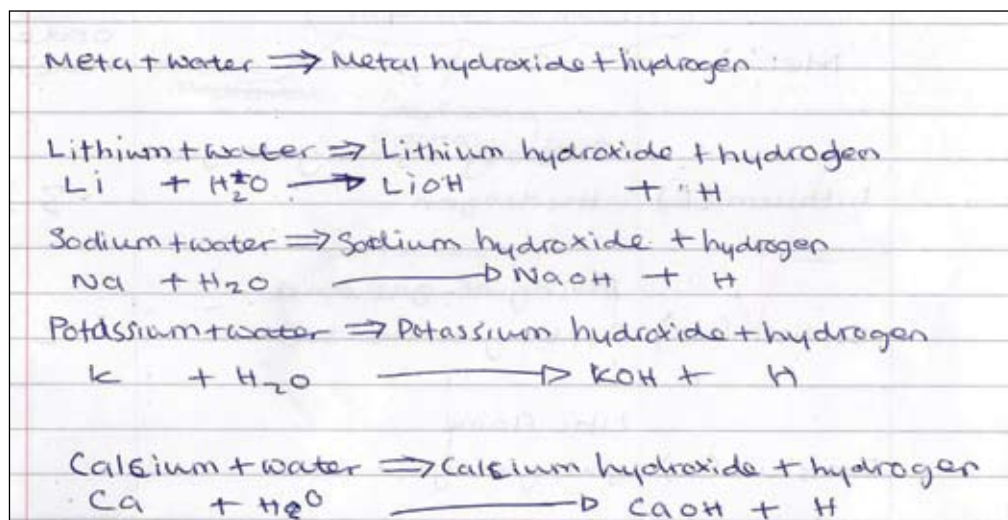 Meta + water ⇒ Metal hydroxide + hydrogen
Lithium + water ⇒ Lithium hydroxide + hydrogen
Li + H₂O → LiOH + H
Sodium + water ⇒ Sodium hydroxide + hydrogen
Na + H₂O → NaOH + H
Potassium + water ⇒ Potassium hydroxide + hydrogen
K + H₂O → KOH + H
Calcium + water ⇒ Calcium hydroxide + hydrogen
Ca + H₂O → CaOH + H